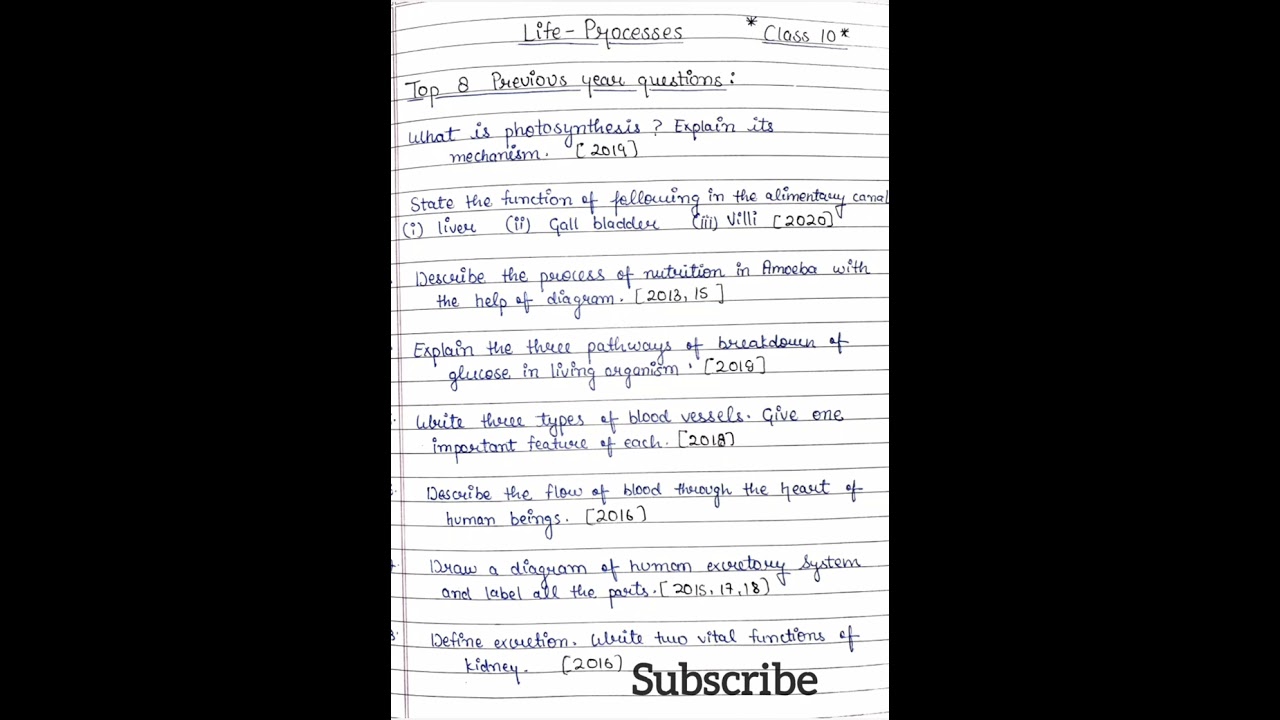 Life-Processes * Class 10 *
Top 8 Previous year questions:
What is photosynthesis? Explain its
mechanism. [2019]
State the function of following in the alimentary canal
(i) liver (ii) Gall bladder (iii) Villi [2020]
Describe the process of nutrition in Amoeba with
the help of diagram. [2013, 15]
Explain the three pathways of breakdown of
glucose in living organism. [2018]
Write three types of blood vessels. Give one
important feature of each. [2018]
Describe the flow of blood through the heart of
human beings. [2016]
Draw a diagram of human excretory system
and label all the parts. [2015, 17, 18]
8. Define excretion. Write two vital functions of
kidney. [2016]
Subscribe